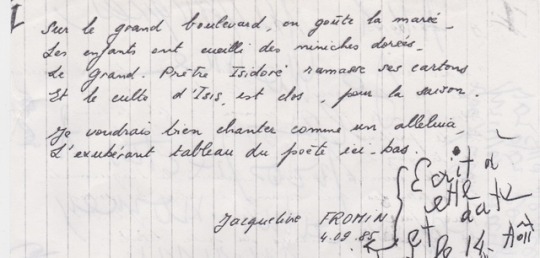 Sur le grand boulevard, on goûte la marée_
Les enfants ont cueilli des niniches dorées_
Le Grand. Prêtre Isidore ramasse ses cartons
Et le culte d'Isis, est clos, pour la saison.
Je voudrais bien chanter comme un alleluia_
L'exubérant tableau du poète ici-bas.
Jacqueline FROMIN
4.09.85
Ecrit à
cette
date
et le 14 Août